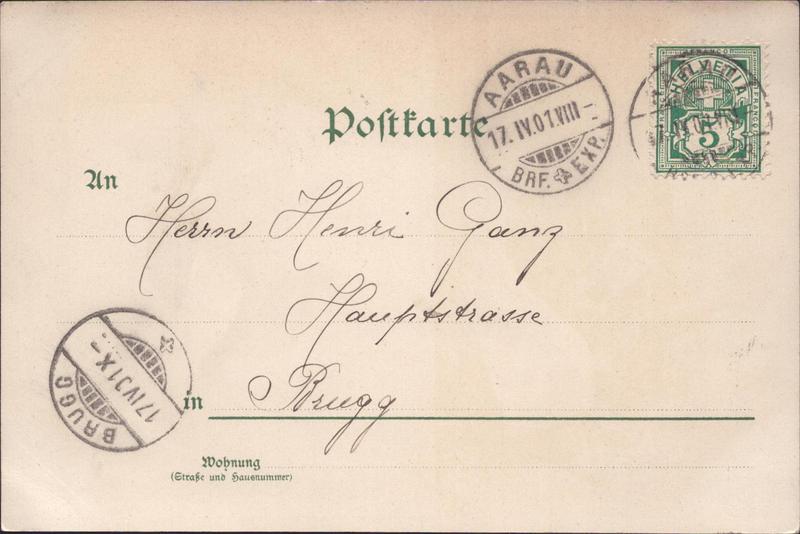 Postkarte
AARAU
17.IV.01.VIII–
BRF. EXP.
HELVETIA
FRANCO
5
An
Herrn Henri Ganz
Hauptstrasse
BRUGG
17.IV.01.IX–
in Brugg
Wohnung
(Straße und Hausnummer)